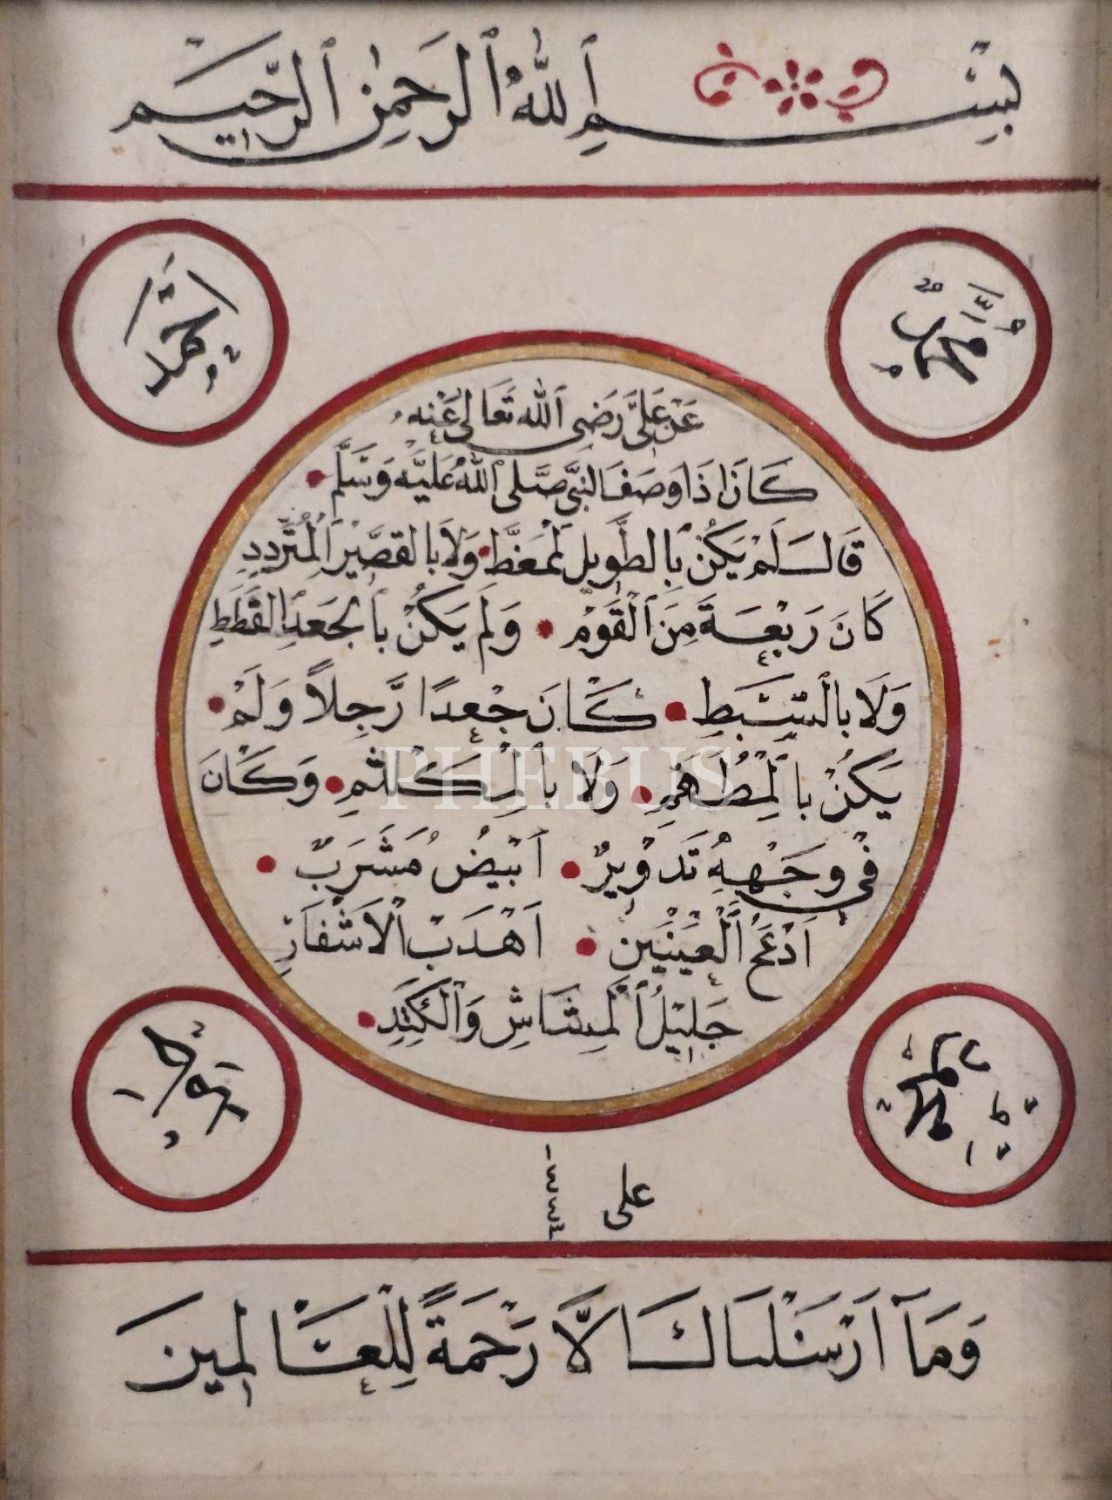 بِسْمِ ٱللهِ ٱلرَّحْمٰنِ ٱلرَّحِيمِ
محمد
عَنْ عَلِيٍّ رَضِيَ ٱللهُ تَعَالَى عَنْهُ
كَانَ إِذَا وَصَفَ النَّبِيَّ صَلَّى ٱللهُ عَلَيْهِ وَسَلَّمَ
قَالَ لَمْ يَكُنْ بِالطَّوِيلِ لْمُمَغَّطِ وَلَا بِالْقَصِيرِ الْمُتَرَدِّدِ
كَانَ رَبْعَةً مِنَ ٱلْقَوْمِ وَلَمْ يَكُنْ بِالْجَعْدِ الْقَطَطِ
وَلَا بِالسَّبْطِ كَانَ جَعْدًا رَّجِلاً وَلَمْ
يَكُنْ بِالْمُطَهَّمِ وَلَا بِالْمُكَلْثَمِ وَكَانَ
فِي وَجْهِهِ تَدْوِيرٌ اَبْيَضُ مُشَرَبٌ
اَدْعَجُ ٱلْعَيْنَيْنِ اَهْدَبُ الْاَشْفَارِ
جَلِيلُ ٱلْمُشَاشِ وَٱلْكَتَدِ
PHEBUS
على
وَمَآ اَرْسَلْنَاكَ اِلَّا رَحْمَةً لِلْعَالَمِينَ